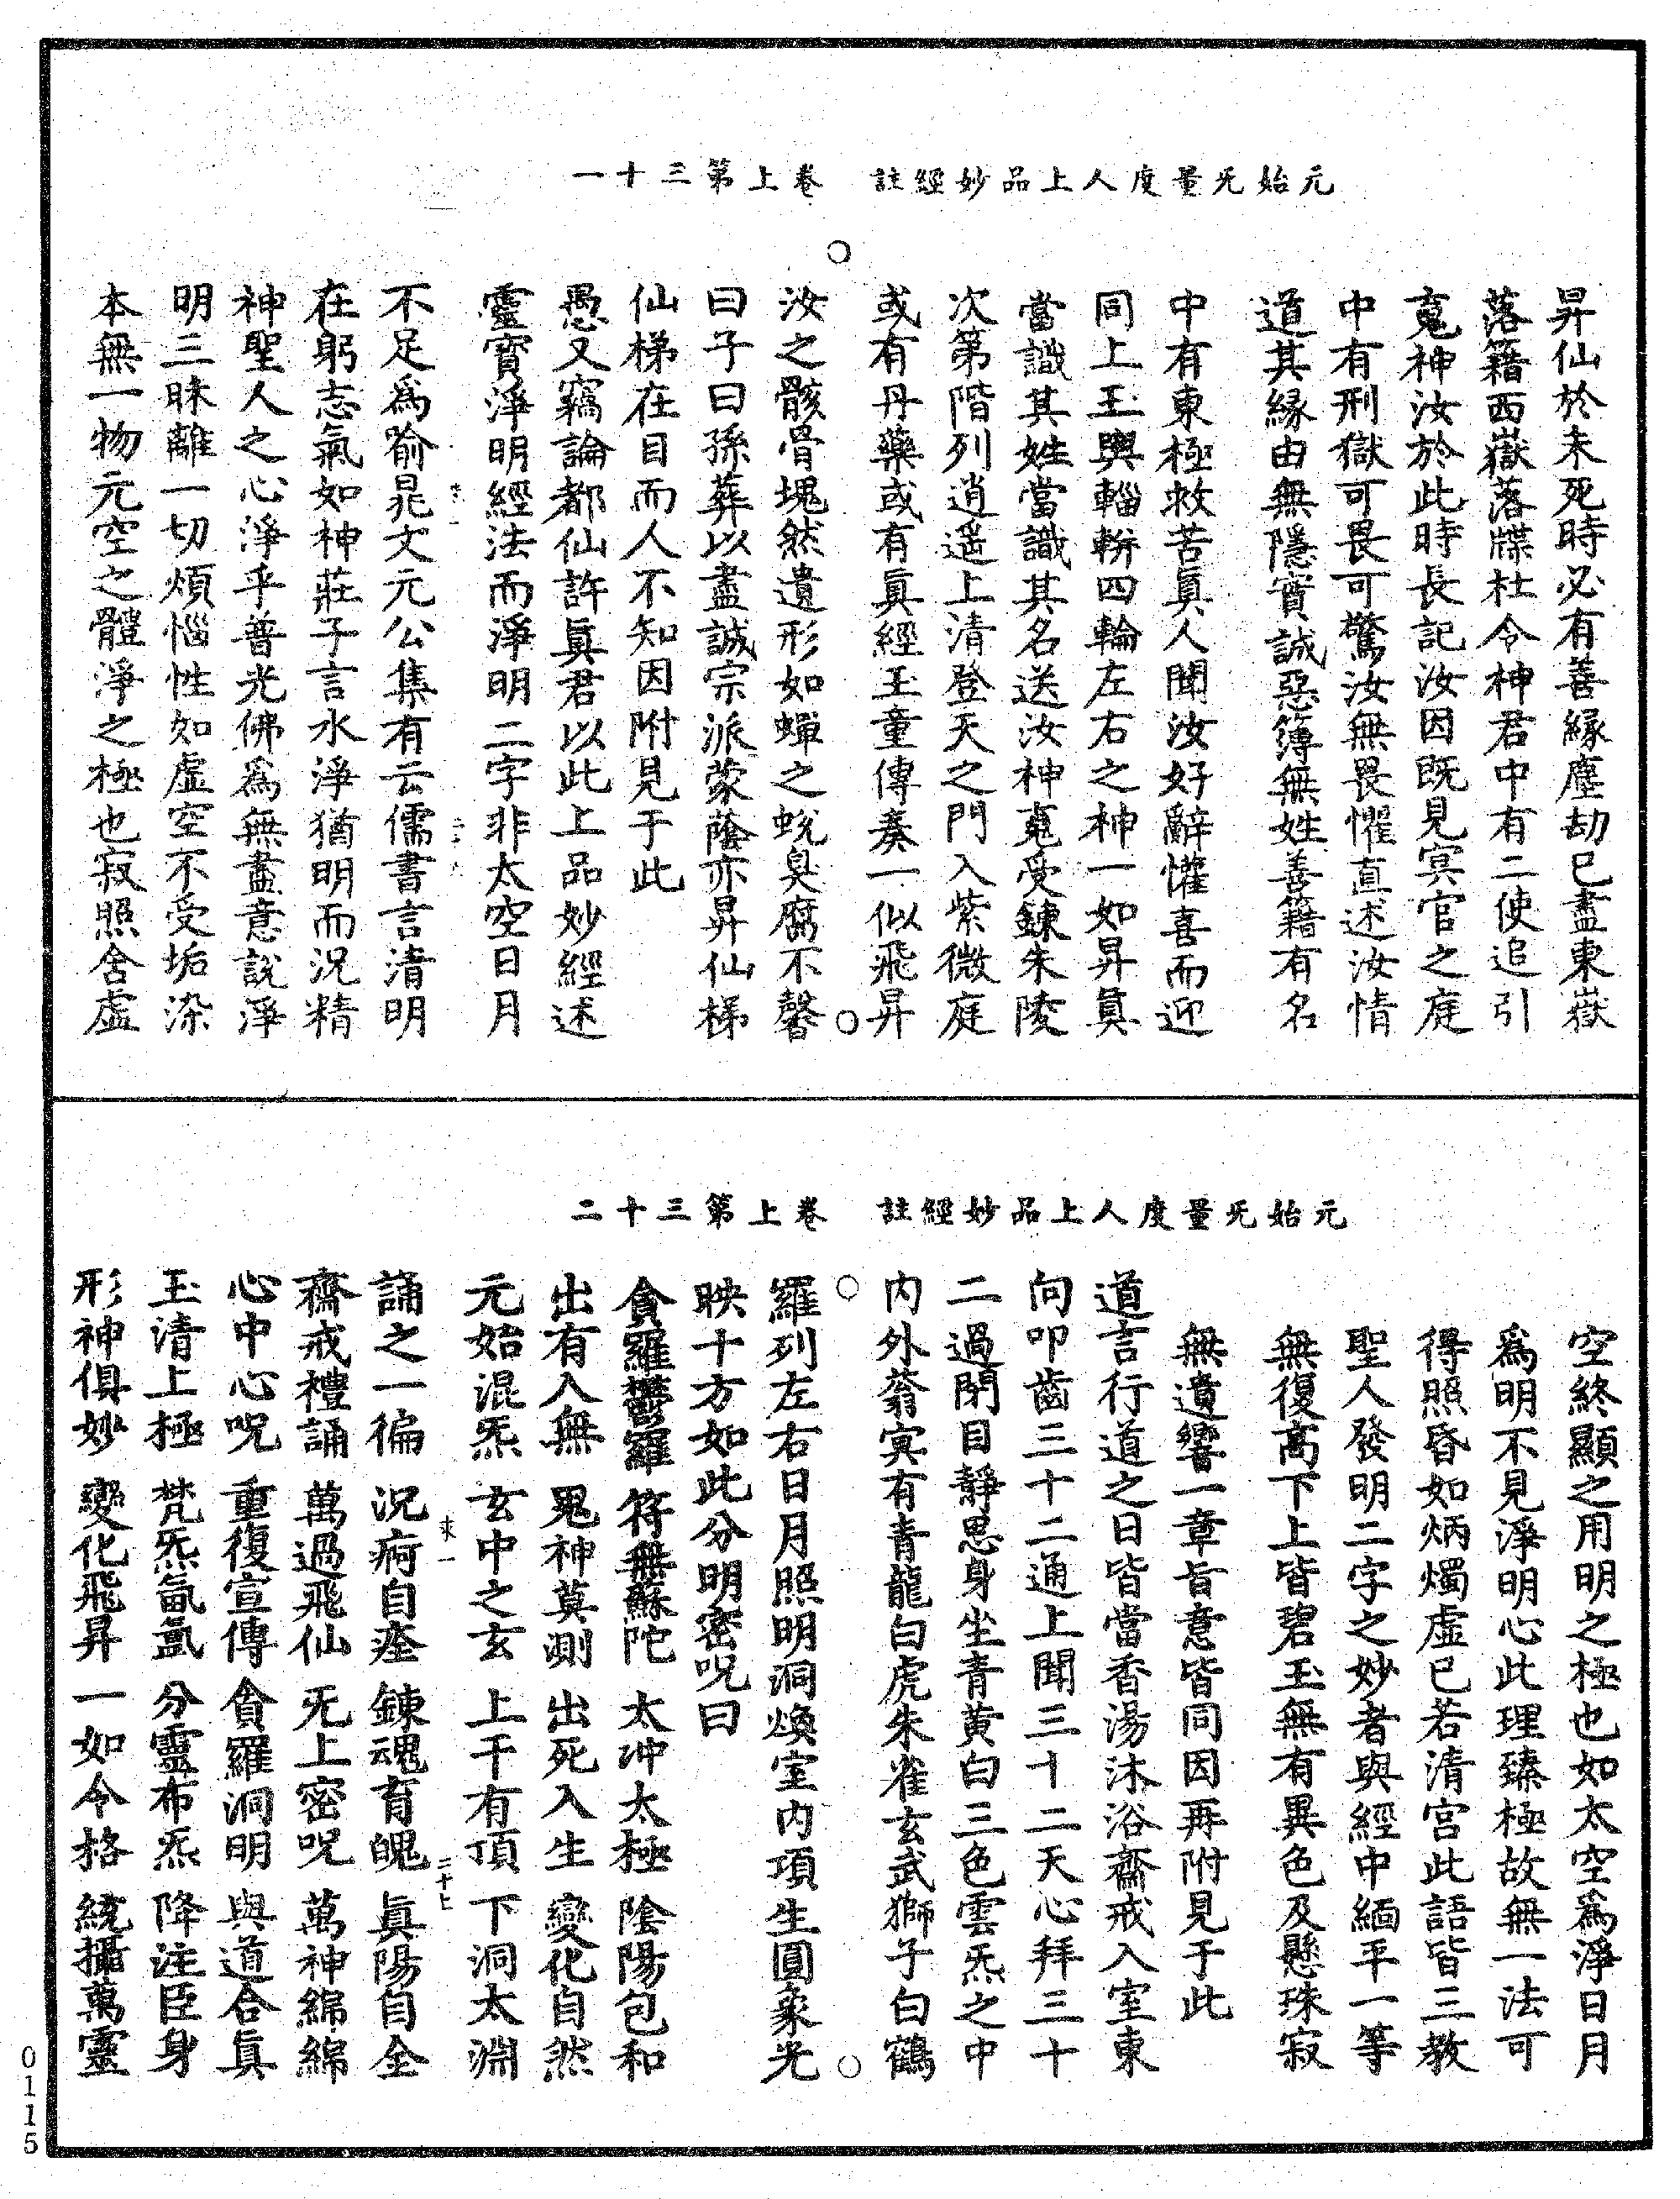 元始无量度人上品妙經註　卷上第三十一
昇仙於未死時必有善緣塵劫已盡東嶽
落籍西嶽落牒杜令神君中有二使追引
䰟神汝於此時長記汝因既見㝠官之庭
中有刑獄可畏可驚汝無畏懼直述汝情
道其緣由無隱實誠惡簿無姓善籍有名
中有東極救苦眞人聞汝好辭懽喜而迎
同上玉輿輜軿四輪左右之神一如昇眞
當識其姓當識其名送汝神䰟受鍊朱陵
次第階列逍遙上清登天之門入紫微庭
或有丹藥或有眞經玉童傳奏一似飛昇
汝之骸骨塊然遺形如蟬之蛻臭腐不馨
曰子曰孫葬以盡誠宗派蒙蔭亦昇仙梯
仙梯在目而人不知因附見于此
愚又竊論都仙許眞君以此上品妙經述
靈寶淨明經法而淨明二字非太空日月
不足爲喻晁文元公集有云儒書言清明
在躬志氣如神莊子言水淨猶明而況精
神聖人之心淨乎普光佛爲無盡意說淨
明三昧離一切煩惱性如虛空不受垢染
本無一物元空之體淨之極也寂照含虛
元始无量度人上品妙經註　卷上第三十二
空終顯之用明之極也如太空爲淨日月
爲明不見淨明心此理臻極故無一法可
得照昏如炳燭虛已若清宮此語皆三教
聖人發明二字之妙者與經中緬平一等
無復高下上皆碧玉無有異色及懸珠寂
無遺響一章旨意皆同因再附見于此
道言行道之日皆當香湯沐浴齋戒入室東
向叩齒三十二通上聞三十二天心拜三十
二過閉目靜思身坐青黃白三色雲炁之中
内外蓊㝠有青龍白虎朱雀玄武獅子白鶴
羅列左右日月照明洞煥室内項生圓象光
映十方如此分明密呪曰
貪羅鬱羅　符無蘇陀　太冲太極　陰陽包和
出有入無　鬼神莫測　出死入生　變化自然
元始混炁　玄中之玄　上干有頂　下洞太淵
誦之一徧　況痾自痊　鍊魂育魄　眞陽自全
齋戒禮誦　萬過飛仙　无上密呪　萬神綿綿
心中心呪　重復宣傳　貪羅洞明　與道合眞
玉清上極　梵炁氤氳　分靈布炁　降注臣身
形神俱妙　變化飛昇　一如令格　統攝萬靈
0115